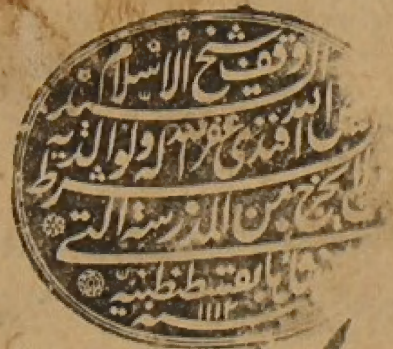 وقف شيخ الاسلام
السيد فيض الله افندى غفر الله له ولوالديه
بشرط ان لا يخرج من المدرسة التى
انشأها بقسطنطينية
سنه ١١١٢